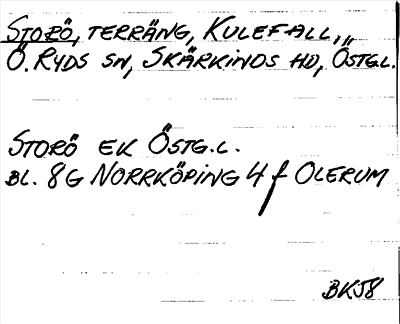 STORÖ, TERRÄNG, KULEFALL,,,
Ö. RYDS SN, SKÄRKINDS HD, ÖSTG.L.
STORÖ EK ÖSTG.L.
BL. 8G NORRKÖPING 4 f OLERUM
BKJ8